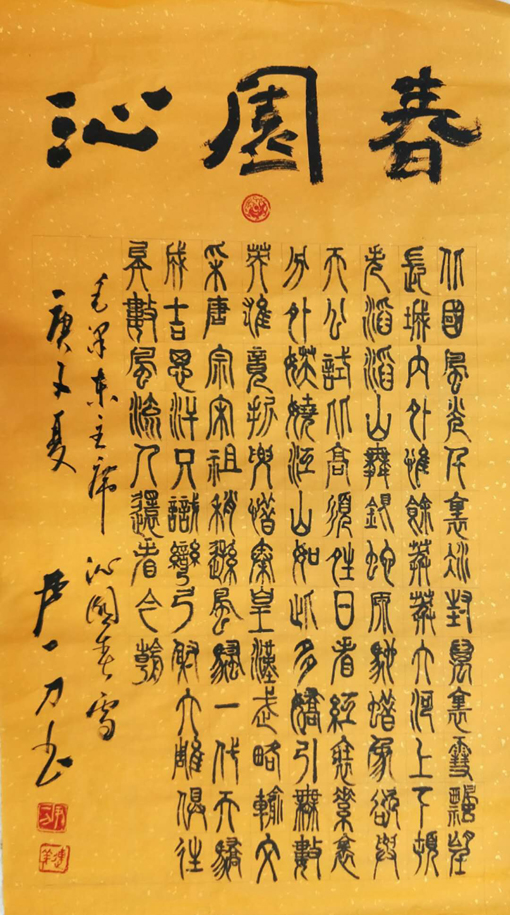 沁園春
北國風光千裏冰封萬裏雪飄望
長城内外惟餘莽莽大河上下頓
失滔滔山舞銀蛇原馳蠟象欲與
天公試比高須晴日看紅裝素裹
分外妖嬈江山如此多嬌引無數
英雄竟折腰惜秦皇漢武略輸文
采唐宗宋祖稍遜風騷一代天驕
成吉思汗只識彎弓射大雕俱往
矣數風流人還看今朝
毛澤東主席 沁園春雪
庚子夏 严一刀书